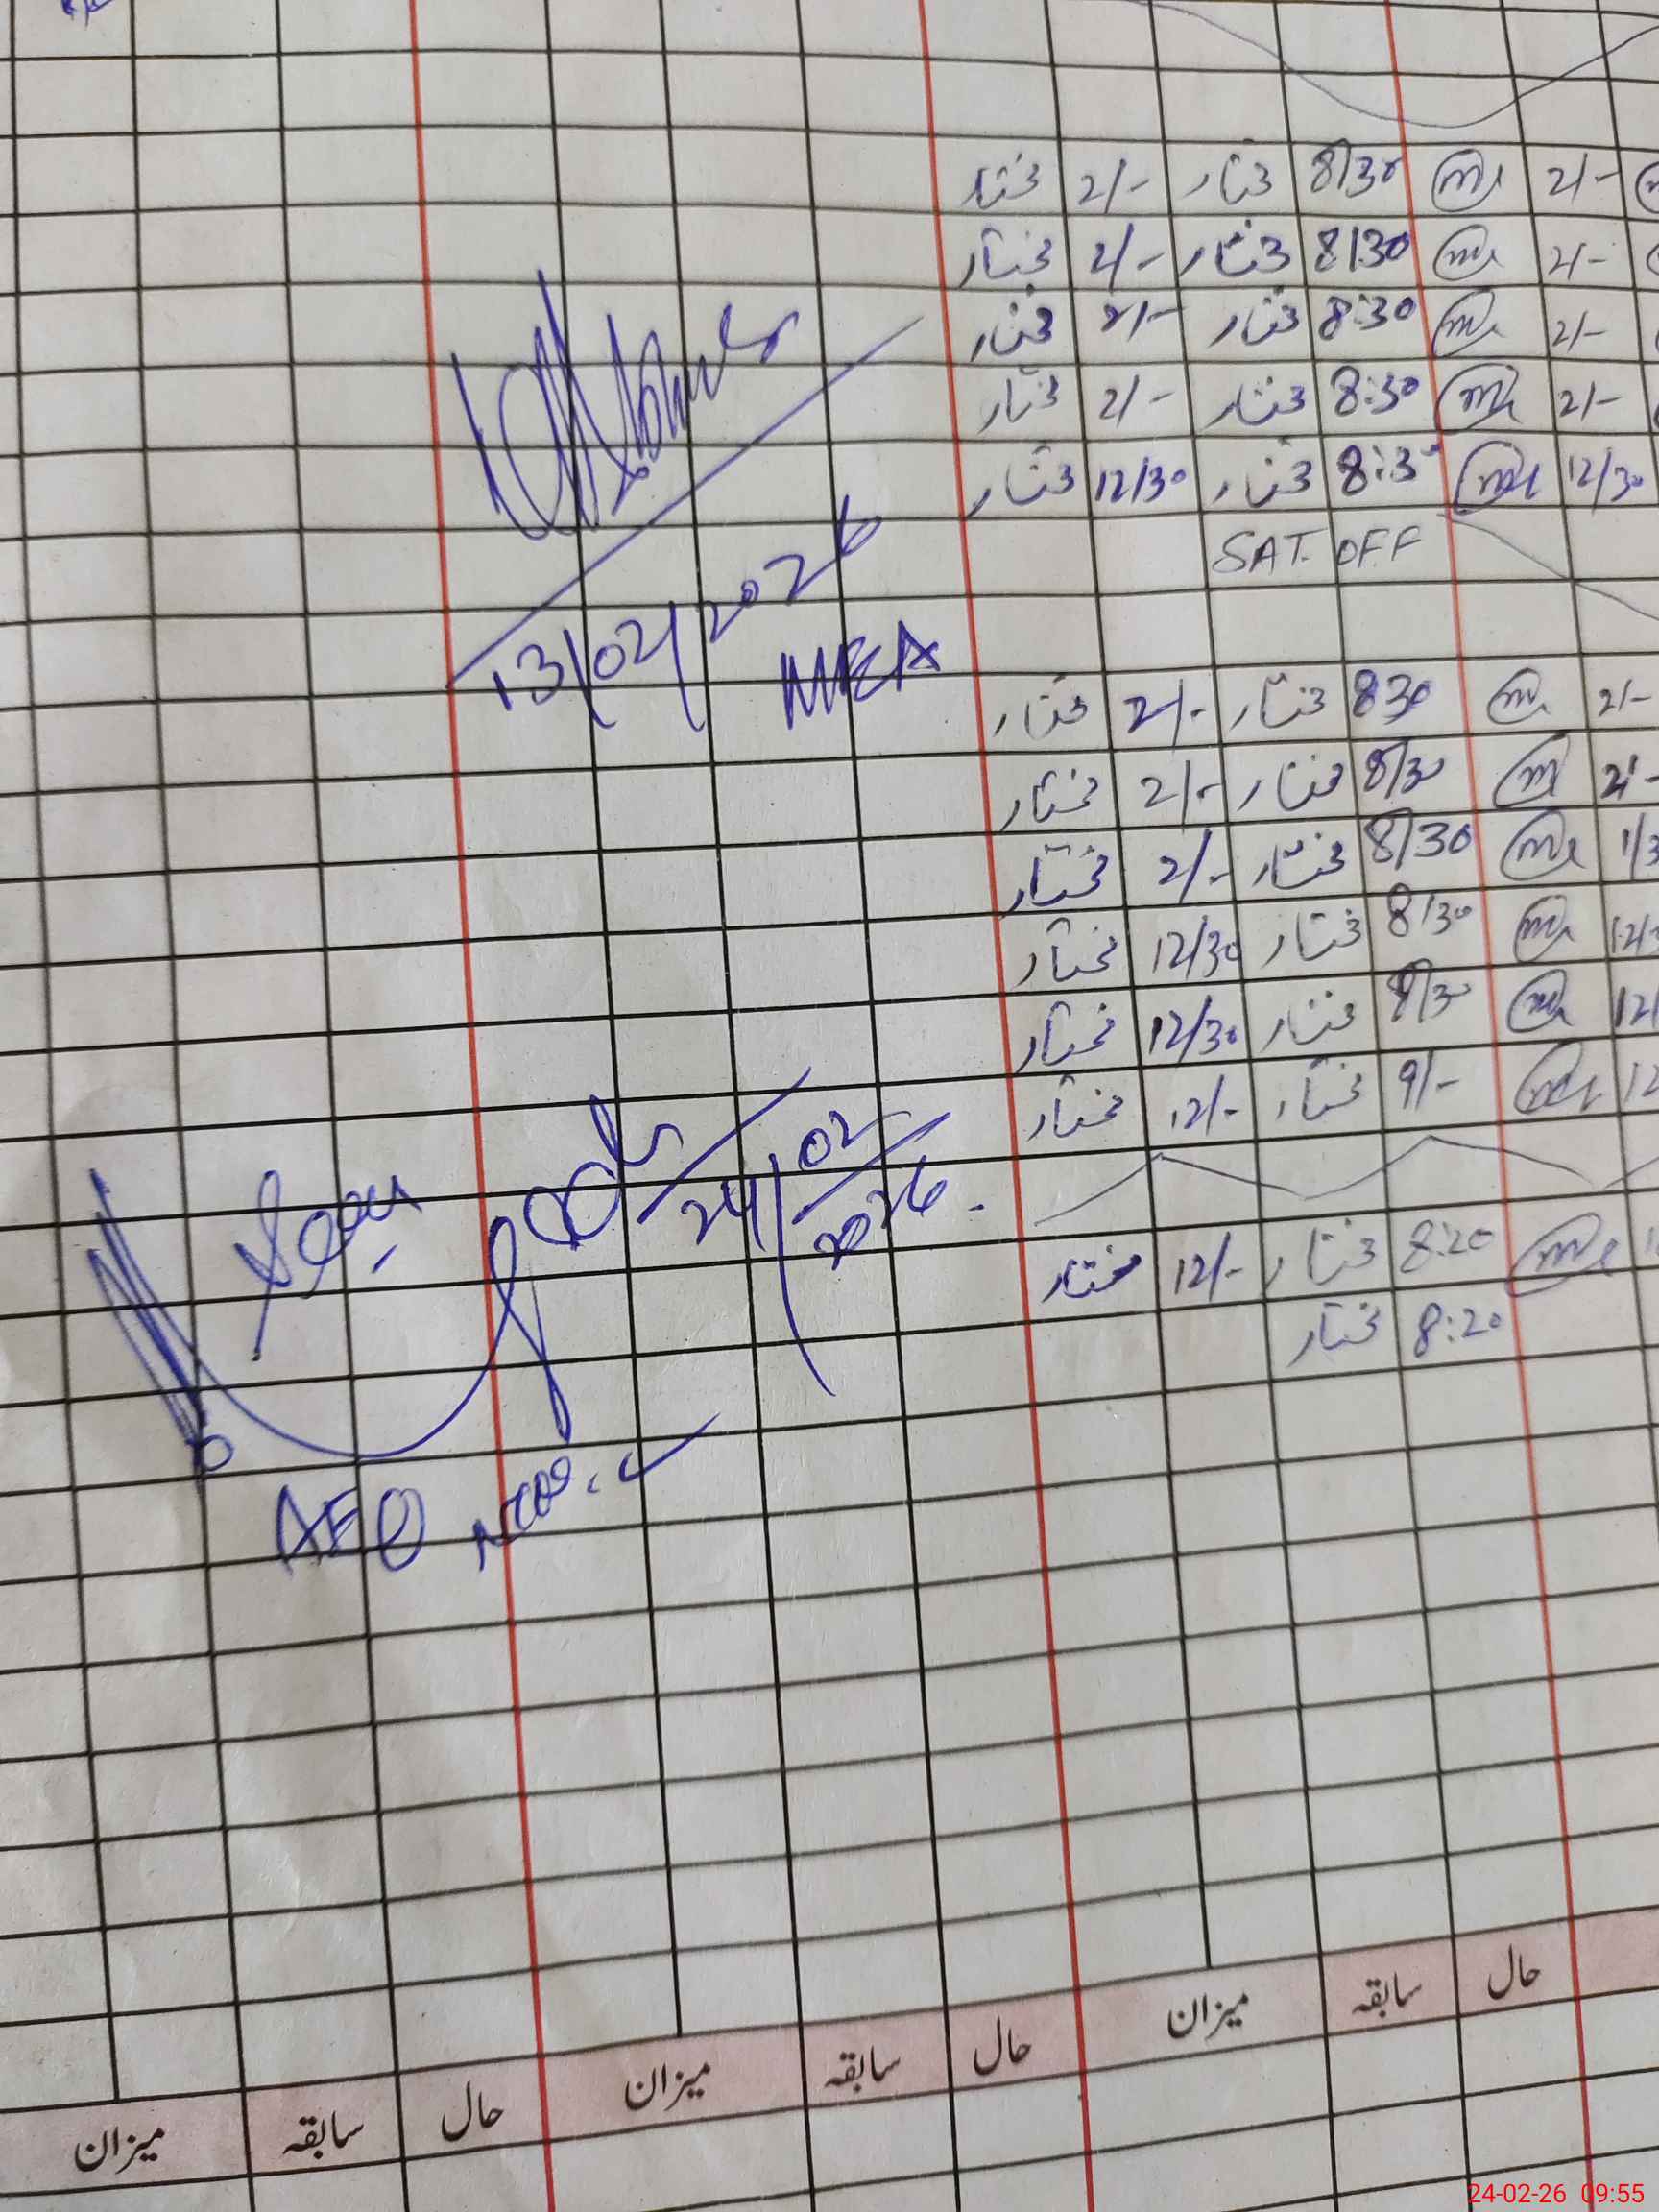 مختار 2/- مختار 8/30 2/-
مختار 2/- مختار 8/30 2/-
مختار 2/- مختار 8:30 2/-
مختار 2/- مختار 8:30 2/-
مختار 12/30 مختار 8:30 12/30
SAT. OFF
13/02/2026
MEA
مختار 2/- مختار 830 2/-
مختار 2/- مختار 8/30 2/-
مختار 2/- مختار 8/30
مختار 12/30 مختار 8/30
مختار 12/30 مختار 8/30
مختار 12/- مختار 9/-
Seen
24/02/2026
مختار 12/- مختار 8:20
مختار 8:20
AEO
حال سابقہ میزان
حال سابقہ میزان
حال سابقہ میزان
24-02-26 09:55